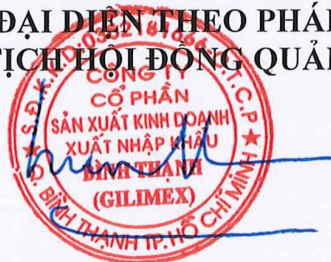 ĐẠI DIỆN THEO PHÁ
TỊCH HỘI ĐỒNG QUẢ
CÔNG TY
CỔ PHẦN
SẢN XUẤT KINH DOANH
XUẤT NHẬP KHẨU
BÌNH THẠNH
(GILIMEX)
Q. BÌNH THẠNH TP. HỒ CHÍ MINH